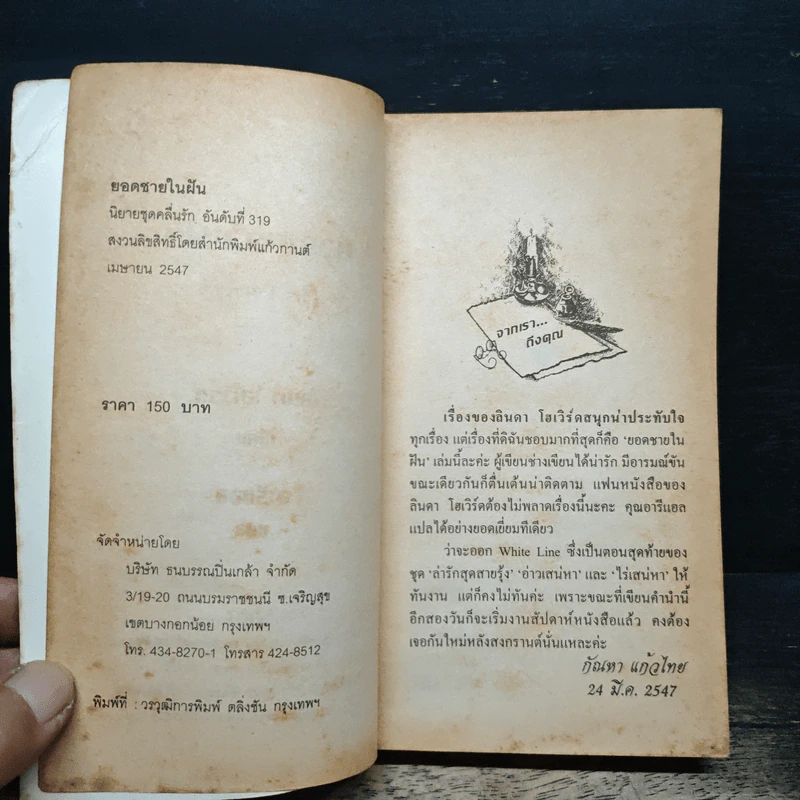 ยอดชายในฝัน
นิยายชุดคลื่นรัก อันดับที่ 319
สงวนลิขสิทธิ์โดยสำนักพิมพ์แก้วกานต์
เมษายน 2547
ราคา 150 บาท
จัดจำหน่ายโดย
บริษัท ธนบรรณปิ่นเกล้า จำกัด
3/19-20 ถนนบรมราชชนนี ซ.เจริญสุข
เขตบางกอกน้อย กรุงเทพฯ
โทร. 434-8270-1 โทรสาร 424-8512
พิมพ์ที่ : วรวุฒิการพิมพ์ ตลิ่งชัน กรุงเทพฯ
จากเรา...
ถึงคุณ
เรื่องของลินดา โฮเวิร์ดสนุกน่าประทับใจ
ทุกเรื่อง แต่เรื่องที่ดิฉันชอบมากที่สุดก็คือ ‘ยอดชายใน
ฝัน’ เล่มนี้ละค่ะ ผู้เขียนช่างเขียนได้น่ารัก มีอารมณ์ขัน
ขณะเดียวกันก็ตื่นเต้นน่าติดตาม แฟนหนังสือของ
ลินดา โฮเวิร์ดต้องไม่พลาดเรื่องนี้นะคะ คุณอารีแอล
แปลได้อย่างยอดเยี่ยมทีเดียว
ว่าจะออก White Line ซึ่งเป็นตอนสุดท้ายของ
ชุด ‘ล่ารักสุดสายรุ้ง’ ‘อ่าวเสน่หา’ และ ‘ไร่เสน่หา’ ให้
ทันงาน แต่ก็คงไม่ทันค่ะ เพราะขณะที่เขียนคำนำนี้
อีกสองวันก็จะเริ่มงานสัปดาห์หนังสือแล้ว คงต้อง
เจอกันใหม่หลังสงกรานต์นั่นแหละค่ะ
กัณหา แก้วไทย
24 มี.ค. 2547